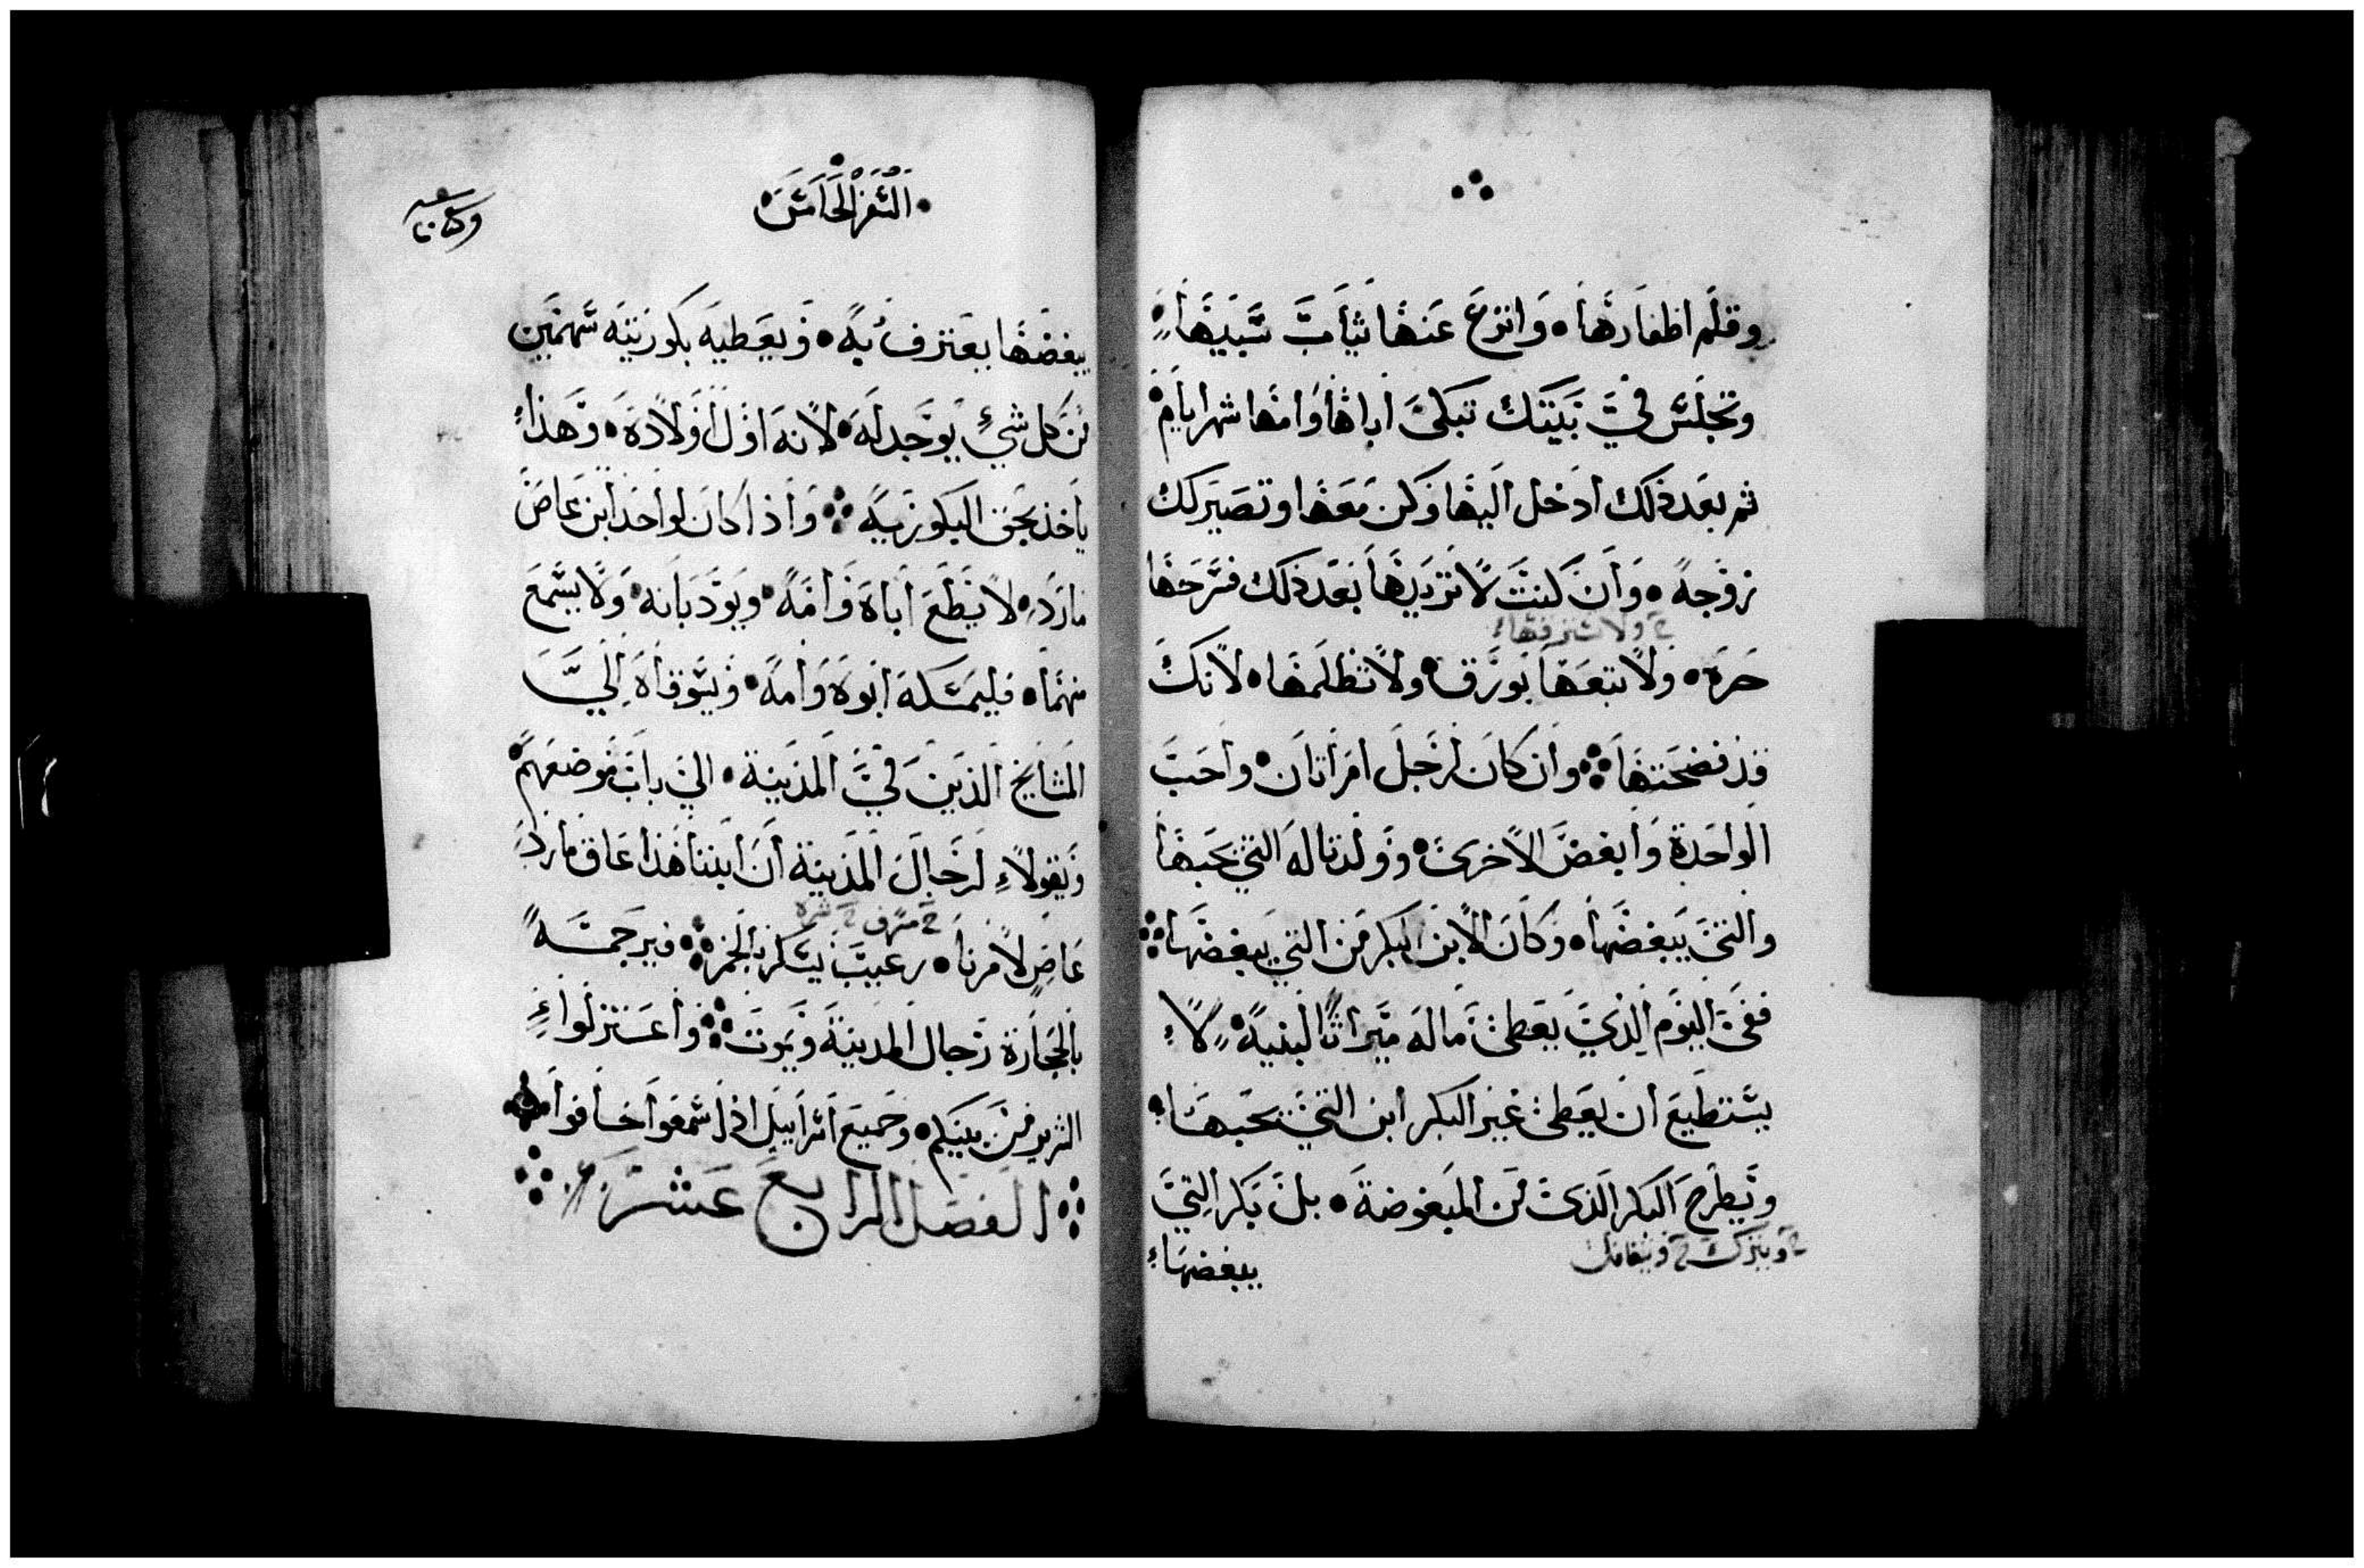 وقلم اظفارها • وانزع عنها ثياب سبيها
وتجلس في بيتك تبكى اباها وامها شهر ايام
ثم بعد ذلك ادخل اليها وكن معها وتصير لك
زوجه • وان كنت لا تريدها بعد ذلك فسرحها
ولا
حره • ولا تبعها بورق • ولا تظلمها • لانك
قد فضحتها ⁘ وان كان لرجل امراتان • واحب
الواحدة وابغض الاخرى • وولدتا له التي يحبها
والتي يبغضها • وكان الابن البكر من التي يبغضها ⁘
ففى اليوم الذي يعطى ماله ميراثا لبنيه • لا
يستطيع ان يعطى غير البكر ابن التي يحبها •
ويطرح البكر الذى من المبغوضة • بل بكر التي
ويترك
يبغضها
السفر الخامس
يبغضها يعترف به • ويعطيه بكوريته سهمين
من كل شي يوجد له • لانه اول اولاده • وهذا
ياخذ بحق البكوريه ⁘ واذا كان لواحد ابن عاص
مارد • لا يطع اباه وامه • ويودبانه • ولا يسمع
منهما • فليمسكه ابوه وامه • ويسوقاه الي
المشايخ الذين في المدينة • الي باب موضعهم
ويقولاء لرجال المدينة ان ابننا هذا عاق مارد
عاص لامرنا • رعيب يسكر بالخمر ⁘ فيرجمه
بالحجارة رجال المدينة ويموت ⁘ واعتزلواء
الشرير من بينكم • وجميع اسراييل اذا سمعوا خافوا
⁘ الفصل الرابع عشر ⁘